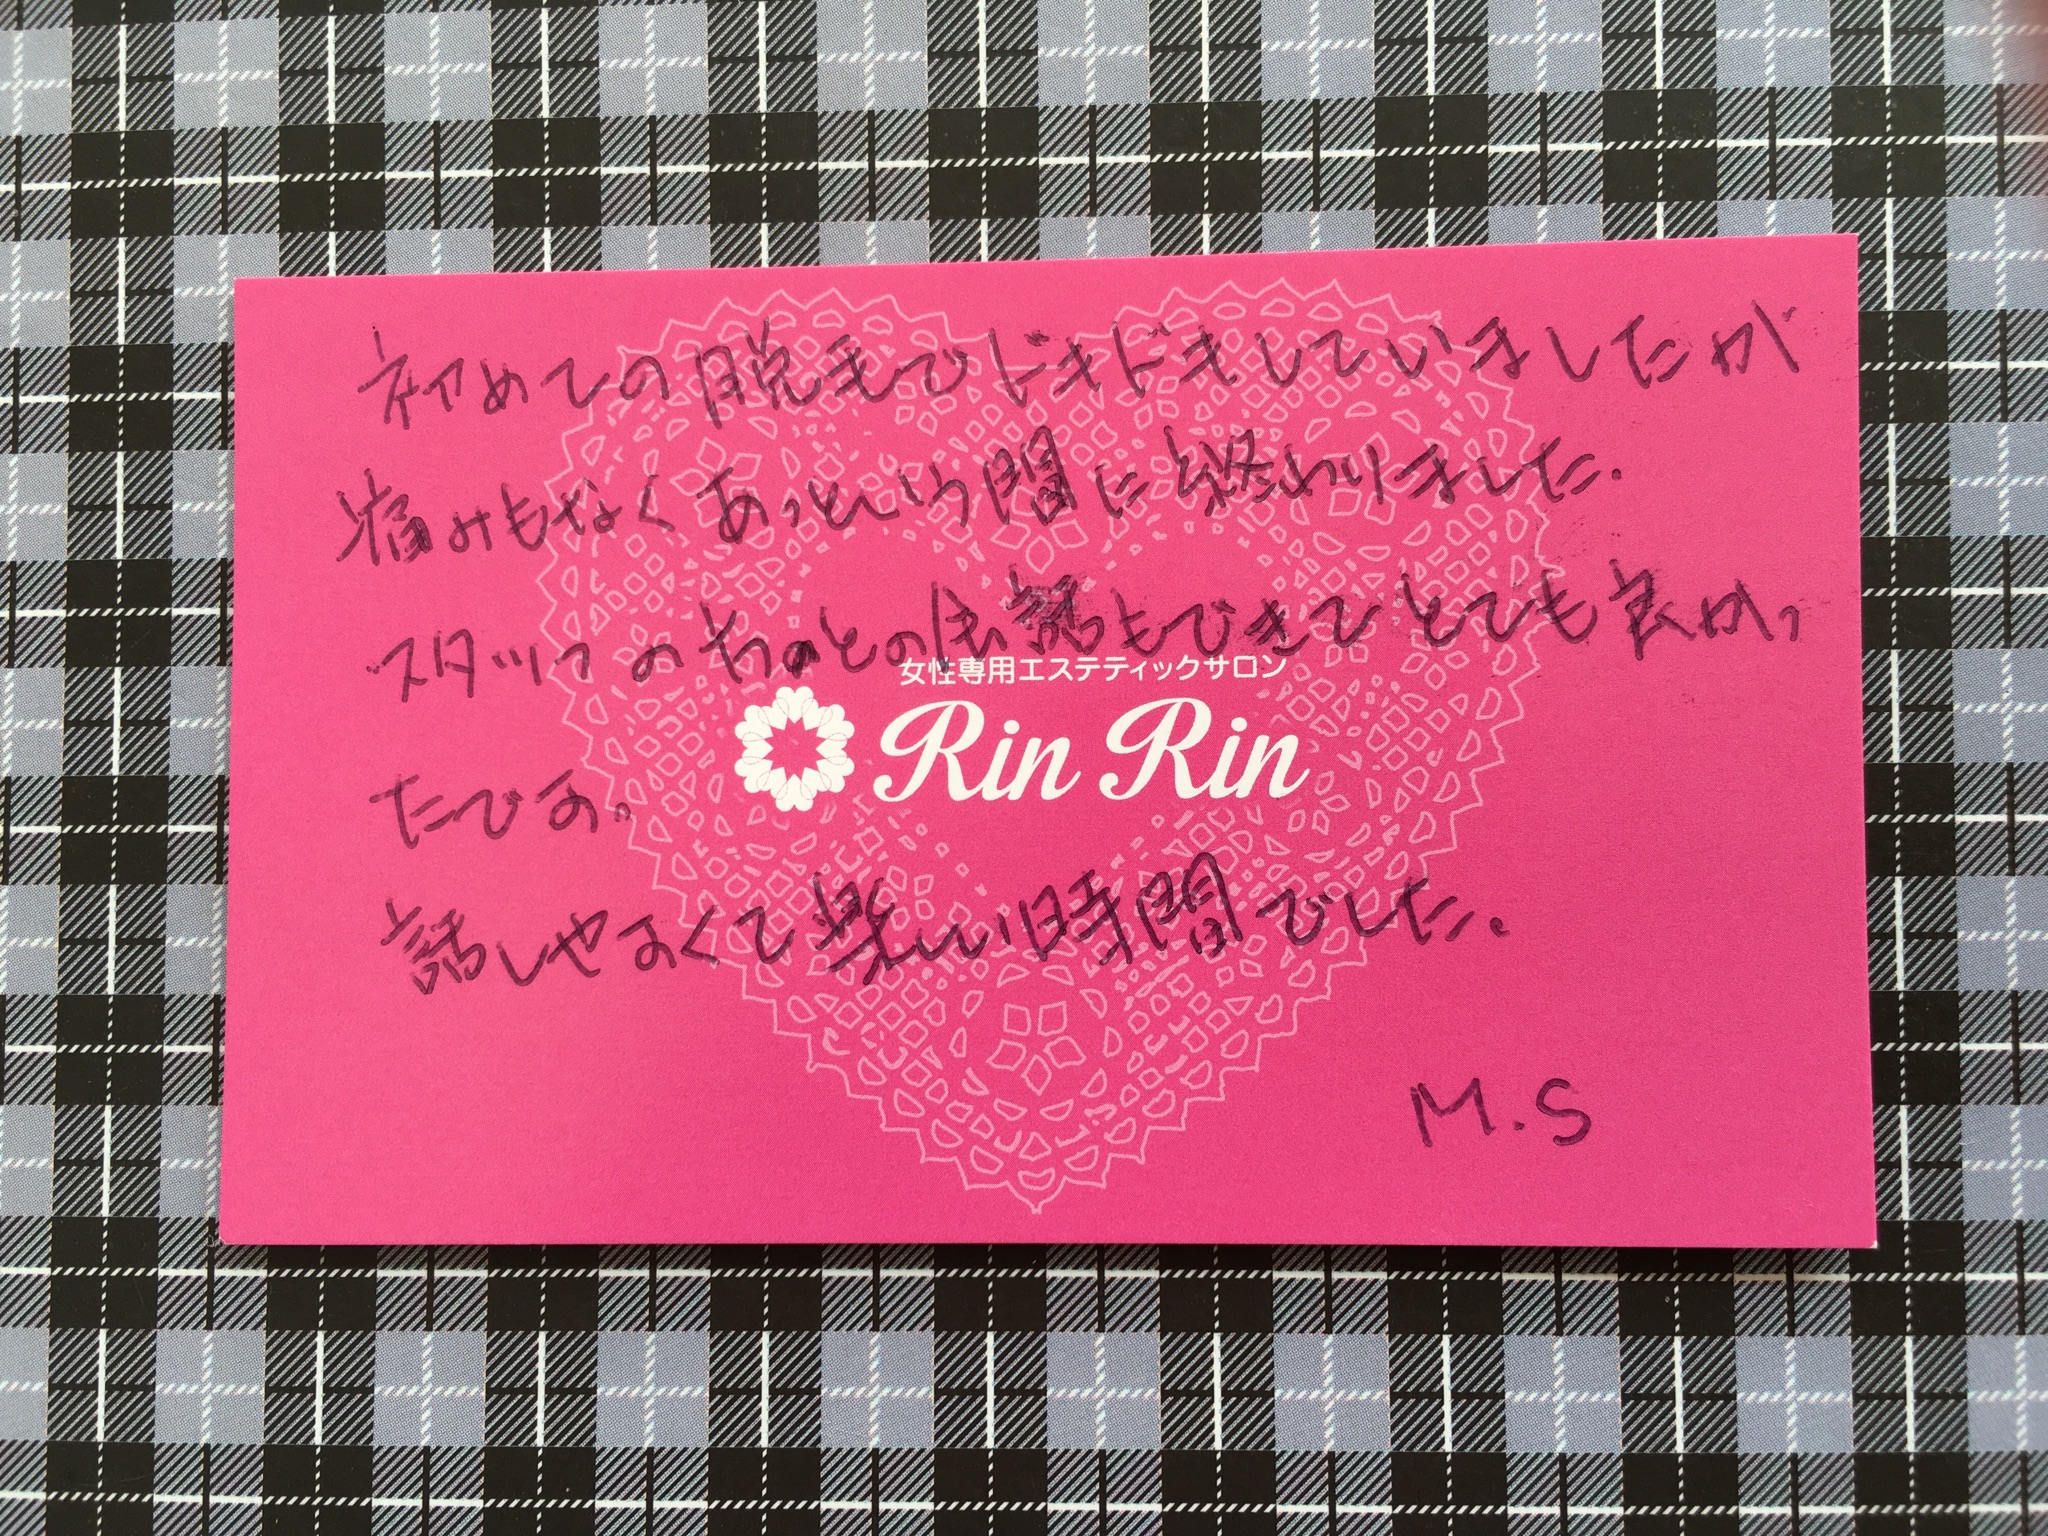 初めての脱毛でドキドキしていましたが
痛みもなくあっという間に終わりました.
スタッフの方との会話もできてとても良かっ
女性専用エステティックサロン
Rin Rin
たです。
話しやすくて楽しい時間でした.
M.S